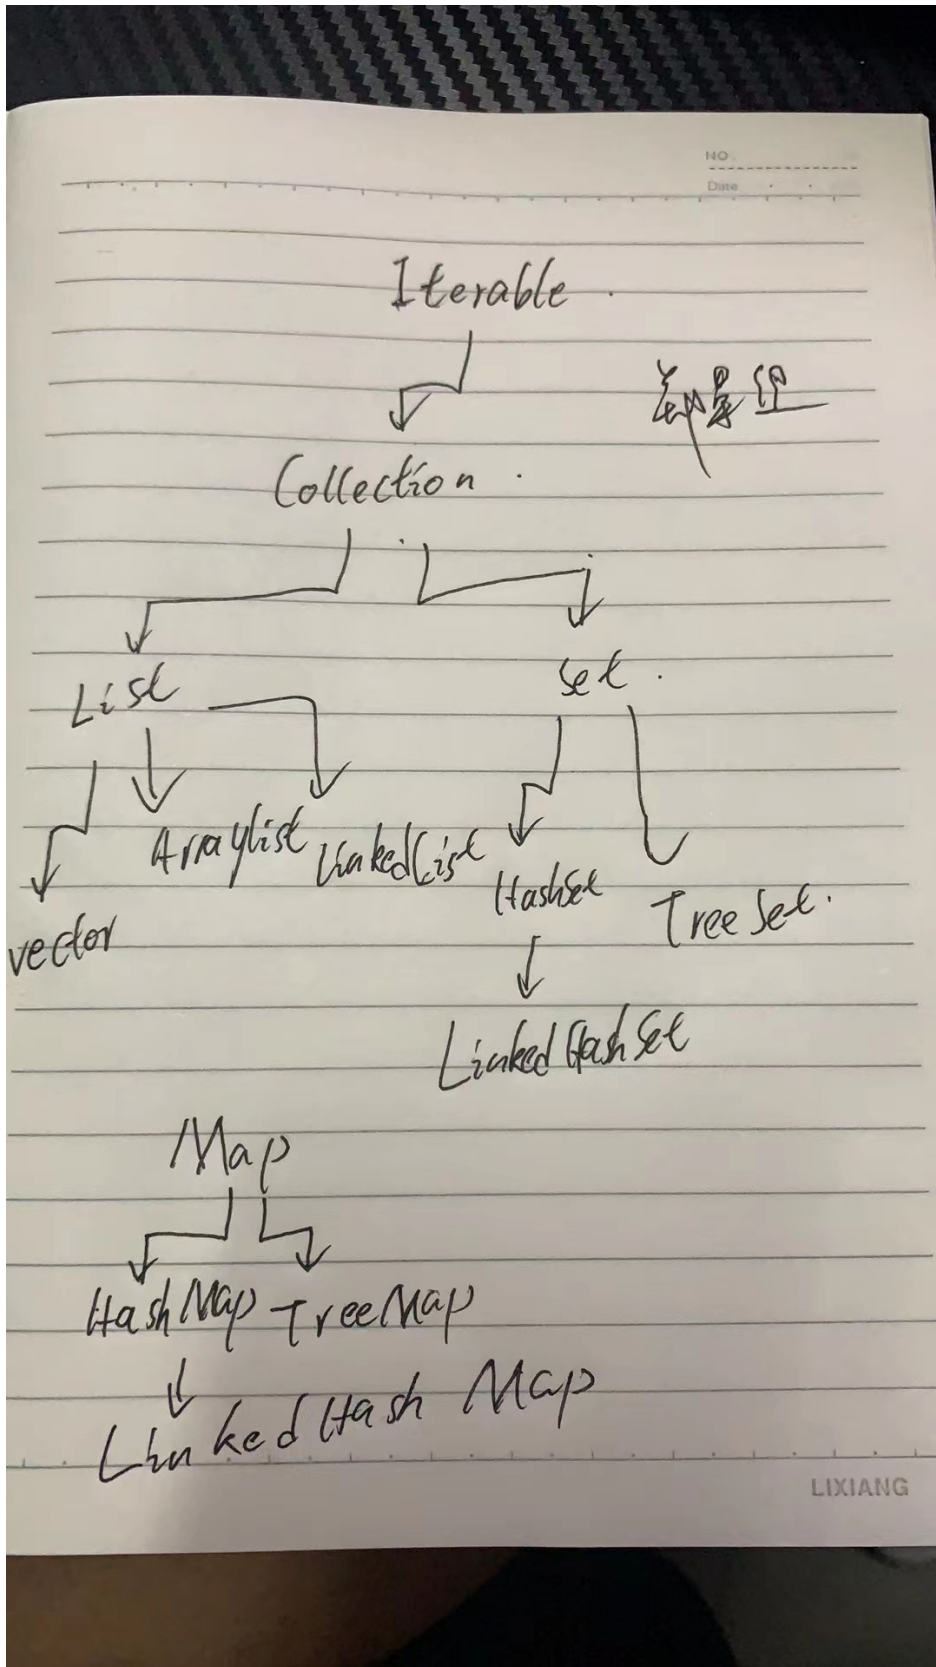 NO
Date
Iterable
Collection
List
Set
ArrayList
LinkedList
HashSet
TreeSet
vector
LinkedHashSet
Map
HashMap TreeMap
LinkedHash Map
LIXIANG